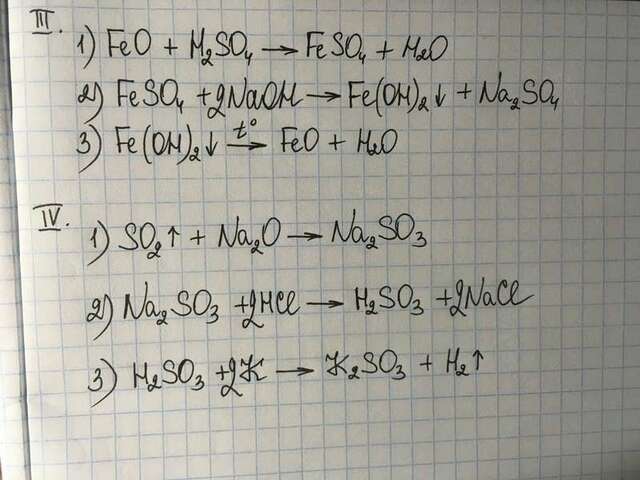 III.
1) FeO + H₂SO₄ → FeSO₄ + H₂O
2) FeSO₄ + 2NaOH → Fe(OH)₂↓ + Na₂SO₄
3) Fe(OH)₂↓ t°→ FeO + H₂O
IV.
1) SO₂↑ + Na₂O → Na₂SO₃
2) Na₂SO₃ + 2HCl → H₂SO₃ + 2NaCl
3) H₂SO₃ + 2K → K₂SO₃ + H₂↑